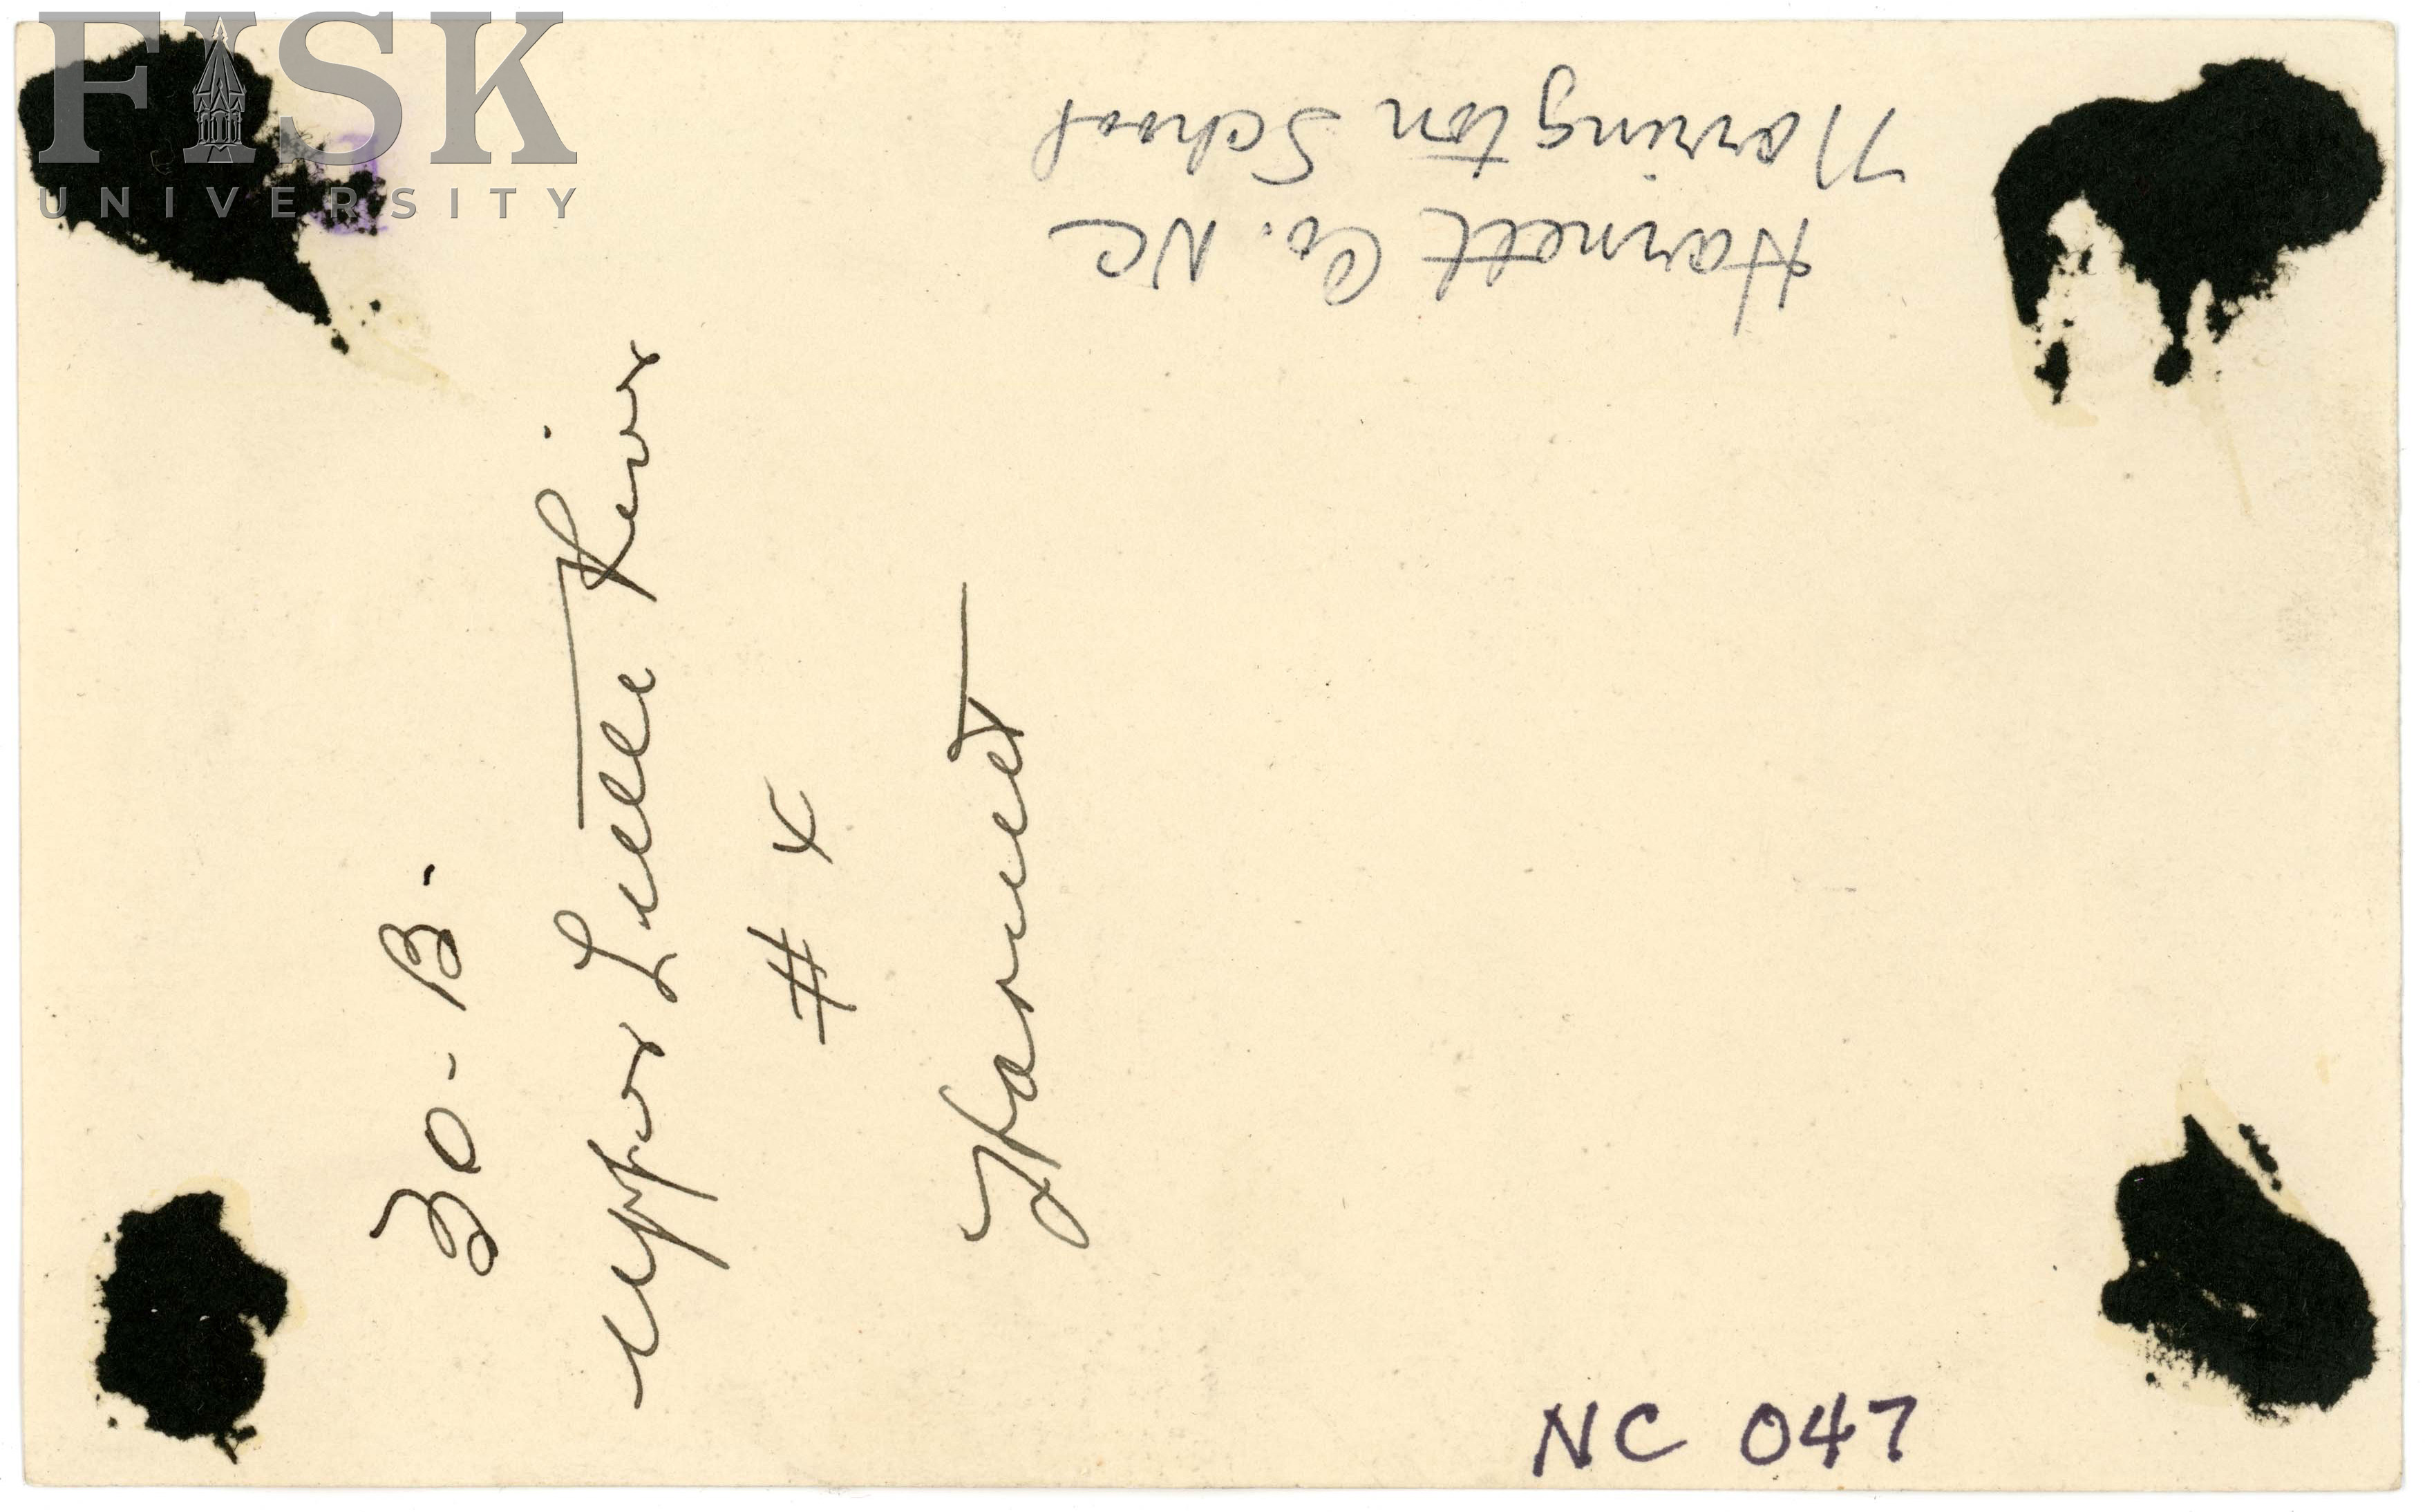 FISK
UNIVERSITY
Harnett Co. NC
Norrington School
30-B.
Upper Little River
# 4
Harnett
NC 047